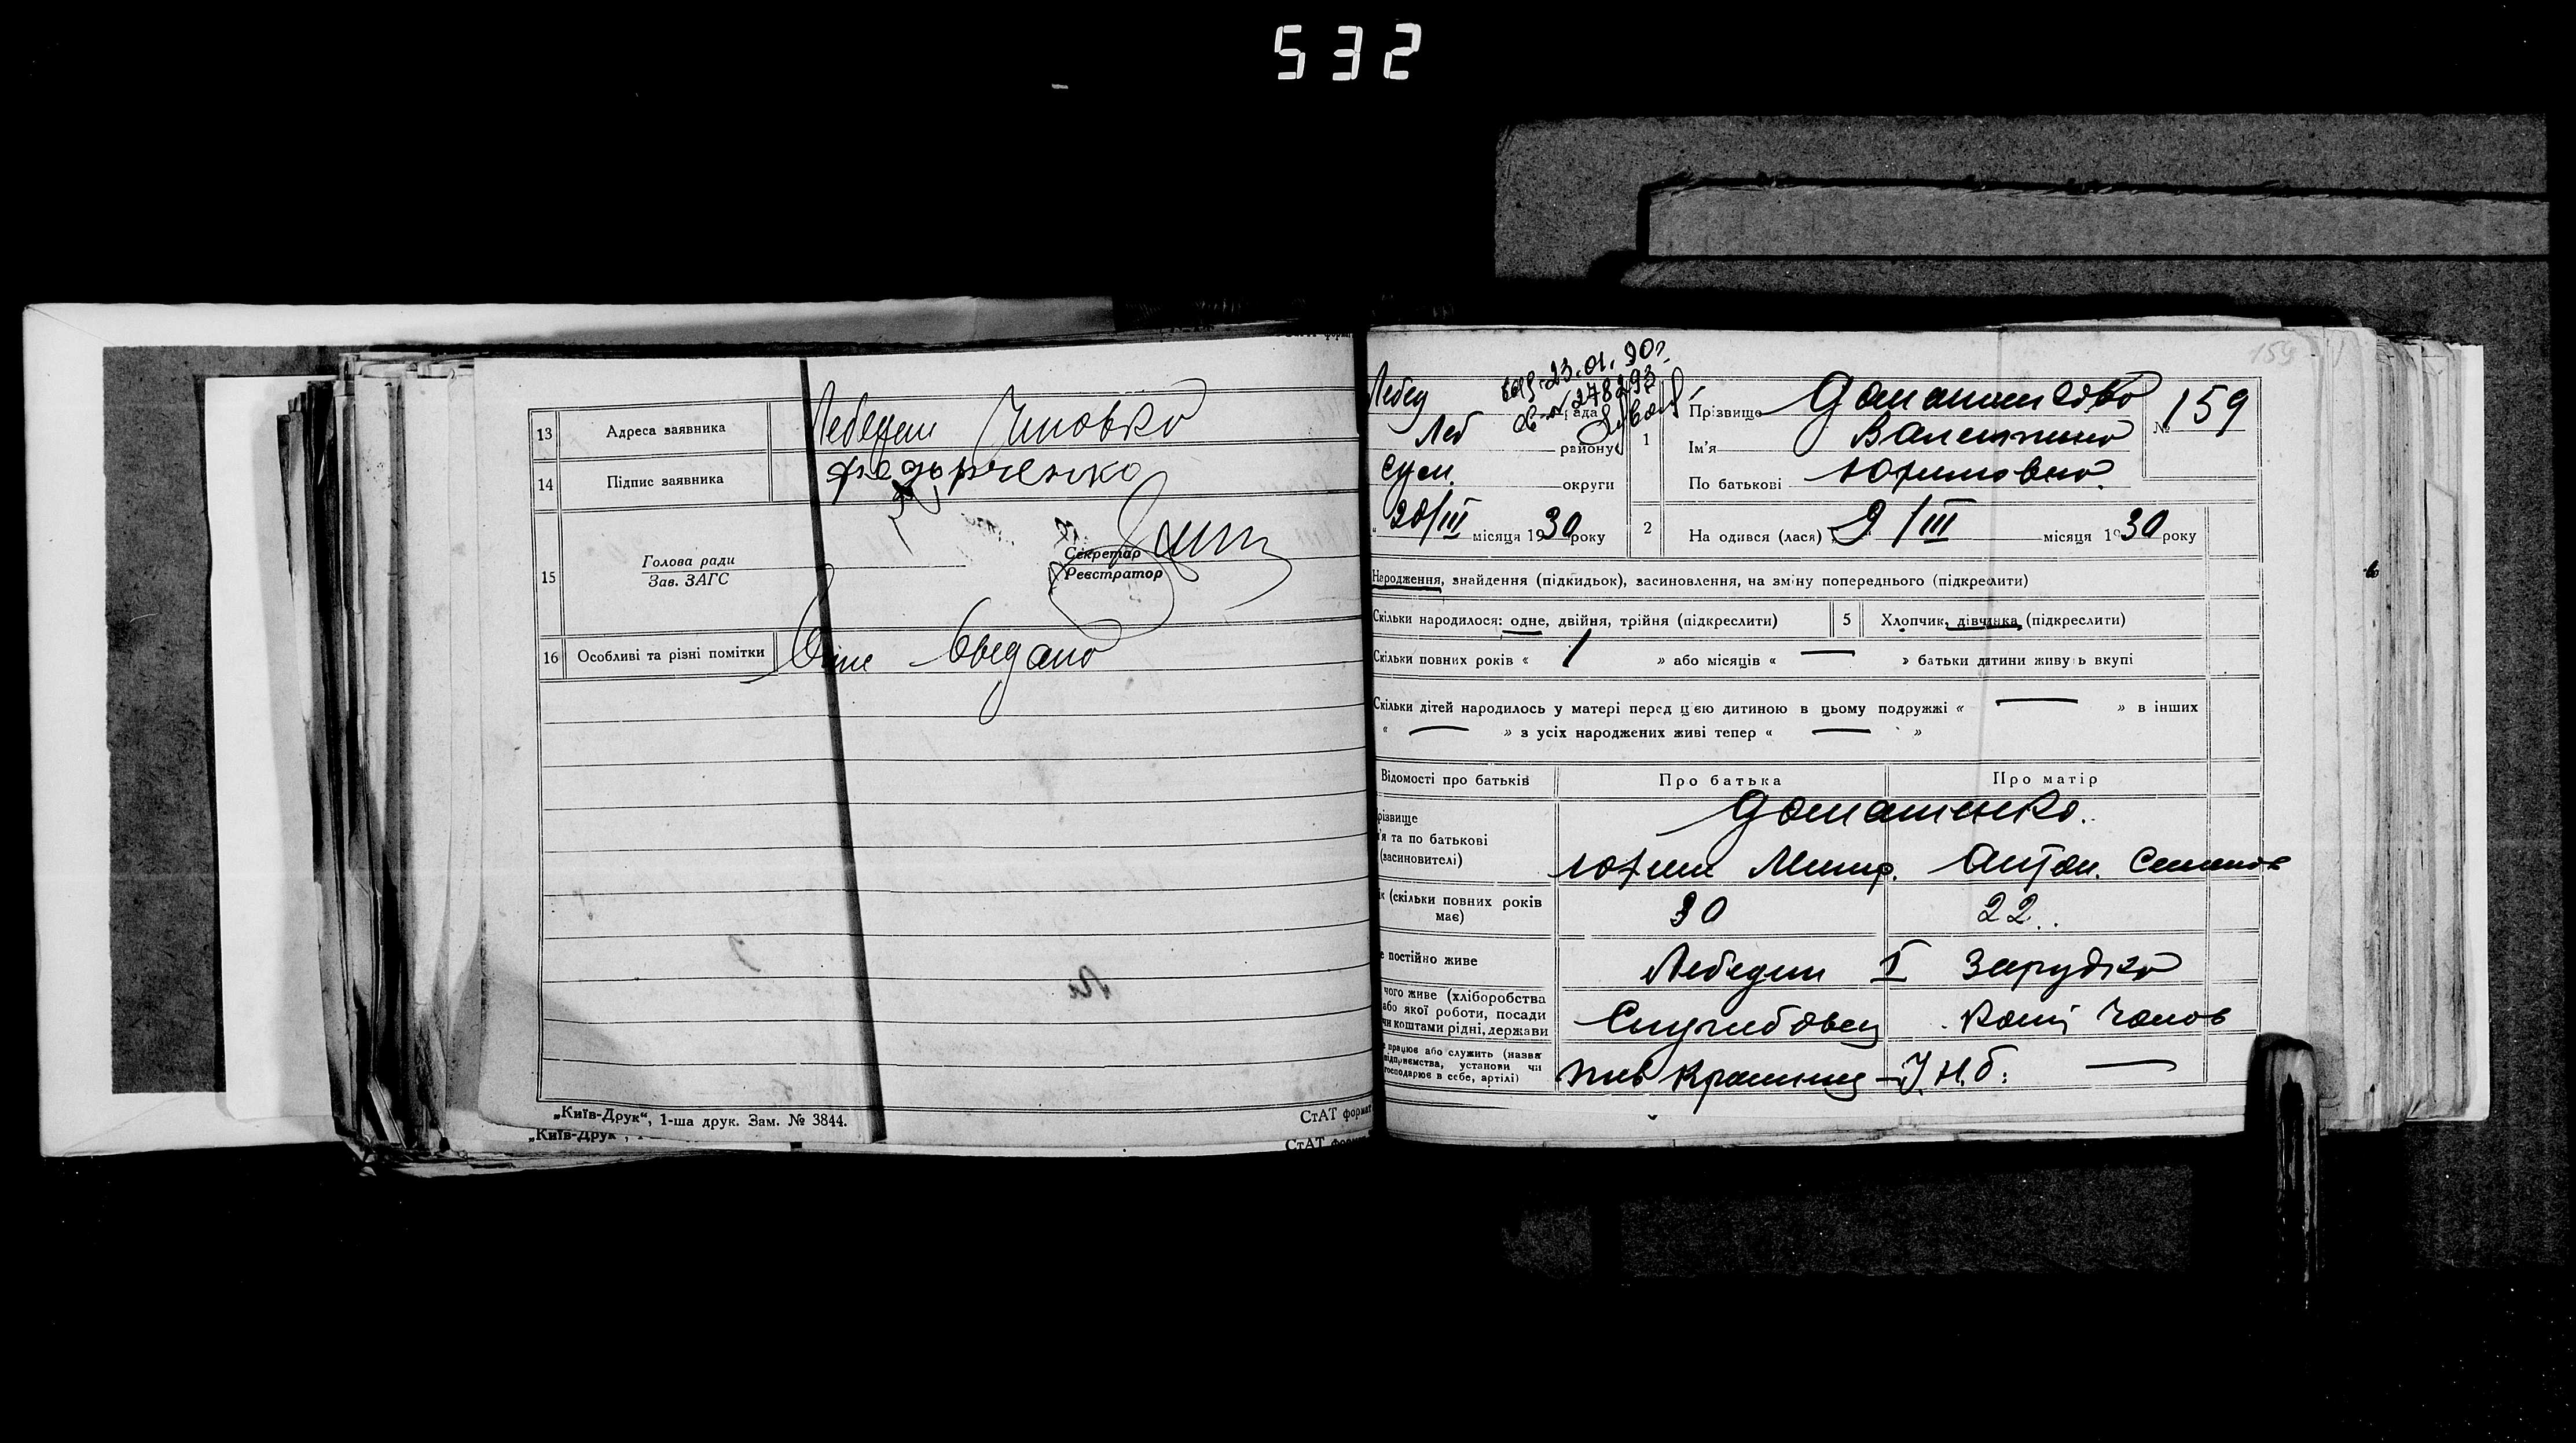 532
13 Адреса заявника Лебедин
14 Підпис заявника Федърченко
15 Голова ради
Зав. ЗАГС
Секретар
Реєстратор
16 Особливі та різні помітки
„Київ-Друк“, 1-ша друк. Зам. № 3844.
СтАТ формат
„Київ-Друк“, 1-
СтАТ формат
159
23.01.90г.
278293
Лебед
рада
Леб району
Сум. округи
„20/III місяця 1930 року
1 Прізвище
Ім'я Валентина
По батькові
№ 159
2 На одився (лася) „9/III місяця 1930 року
Народження, знайдення (підкидьок), засиновлення, на зміну попереднього (підкреслити)
Скільки народилося: одне, двійня, трійня (підкреслити) 5 Хлопчик, дівчинка (підкреслити)
Скільки повних років « 1 » або місяців « — » батьки дитини живуть вкупі
Скільки дітей народилось у матері перед цією дитиною в цьому подружжі « — » в інших
« — » з усіх народжених живі тепер « — »
Відомості про батьків Про батька Про матір
різвище
'я та по батькові
(засиновителі)
Домашенко.
Митр. Антон. Семенов
к (скільки повних років
має) 30 22..
е постійно живе Лебедин I Зарудко
чого живе (хліборобства
або якої роботи, посади
чи коштами рідні, держави
Службовец
е працює або служить (назва
підприємства, установи чи
господарює в себе, артілі)
—